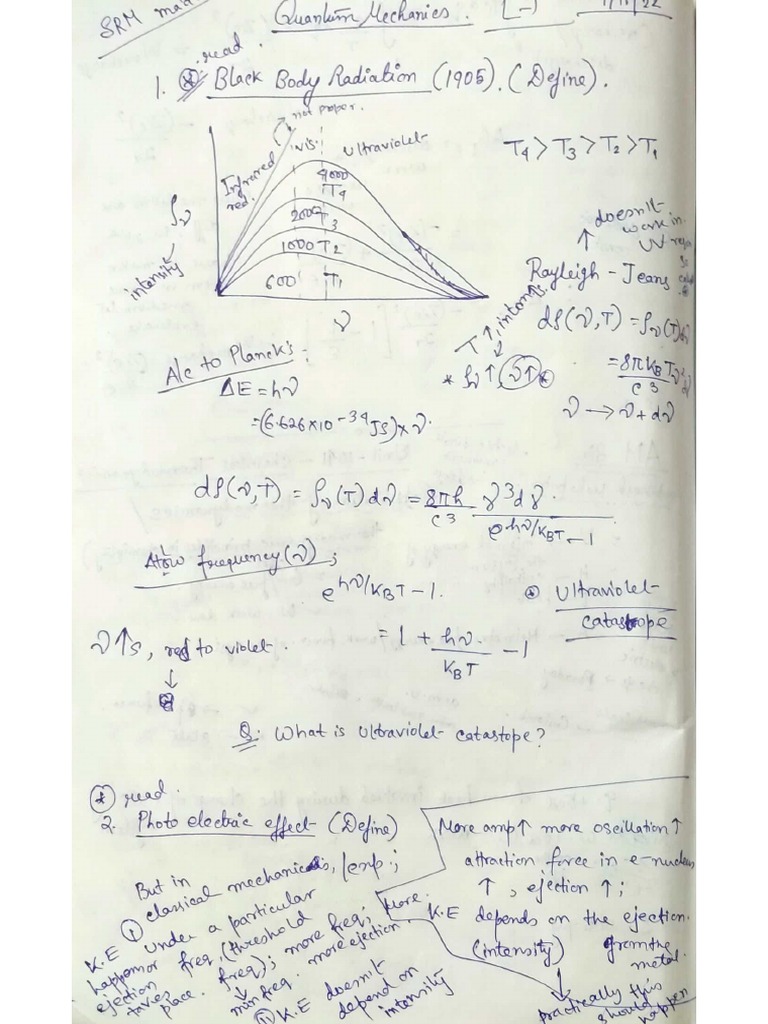 SRM
Quantum Mechanics. L-1
read.
1. Black Body Radiation (1905). (Define).
not proper.
Infrared. vis. Ultraviolet
T4 > T3 > T2 > T1
4000 T4
2000 T3
1000 T2
600 T1
ρν
intensity
ν
doesn't work in UV
Rayleigh - Jeans
dρ(ν,T) = ρν(T)dν
= 8πkBT/c³ ν²dν
ν → ν + dν
T↑, intensity
* ρν↑, ν↑
A/c to Planck's:
ΔE = hν
= (6.626×10⁻³⁴ Js) × ν.
dρ(ν,T) = ρν(T)dν = 8πh/c³ ν³dν/(e^hν/kBT - 1)
At low frequency (ν);
e^hν/kBT - 1.
= 1 + hν/kBT - 1
Ultraviolet
catastope
ν↑s, red to violet.
Q: What is Ultraviolet catastope?
read.
2. Photo electric effect (Define)
But in
classical mechanics, exp;
K.E (i) under a particular
freq, (threshold
ejection freq); more freq;
takes place. more ejection.
min freq.
(ii) K.E doesn't
depend on
intensity
More amp↑ more oscillation↑
attraction force in e-nucleus
↑, ejection ↑;
K.E depends on the ejection
(intensity) from the
metal.
practically this
should
happen